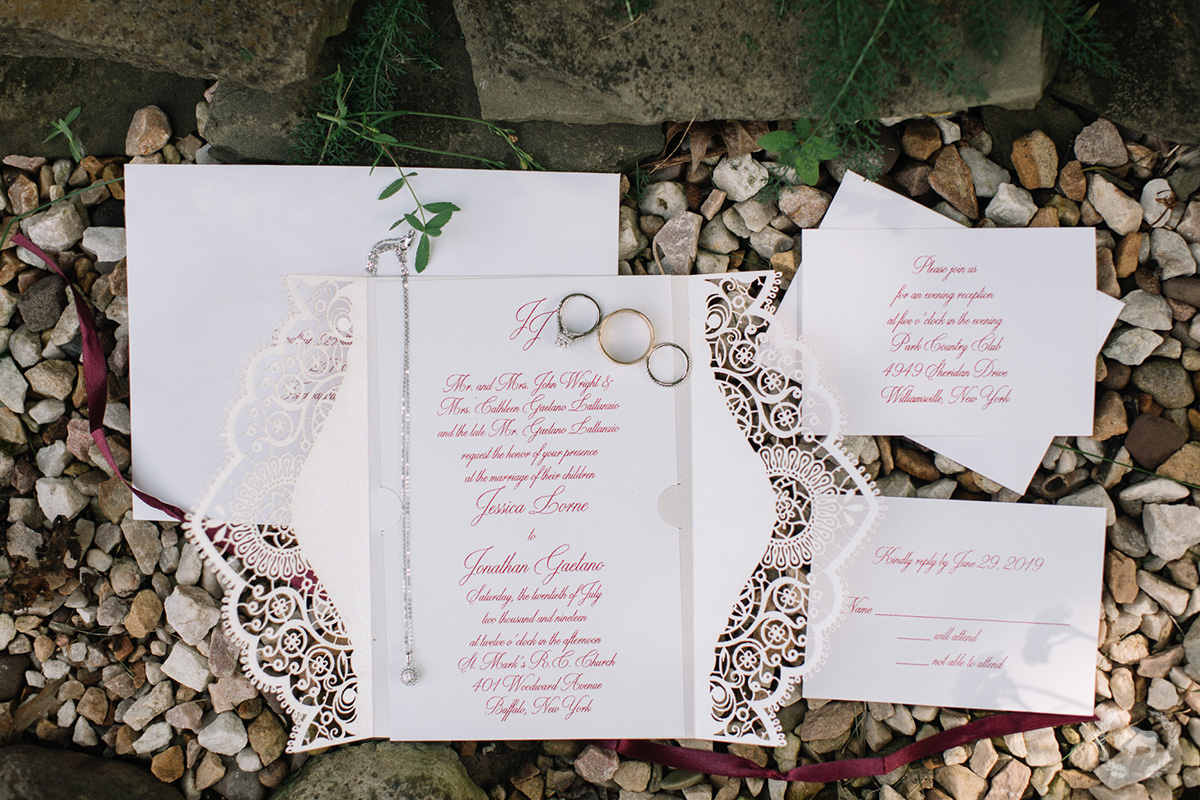 JJ
Mr. and Mrs. John Wright &
Mrs. Cathleen Gaetano Lattanzio
and the late Mr. Gaetano Lattanzio
request the honor of your presence
at the marriage of their children
Jessica Lorne
to
Jonathan Gaetano
Saturday, the twentieth of July
two thousand and nineteen
at twelve o'clock in the afternoon
St. Mark's R.C. Church
401 Woodward Avenue
Buffalo, New York
Please join us
for an evening reception
at five o'clock in the evening
Park Country Club
4949 Sheridan Drive
Williamsville, New York
Kindly reply by June 29, 2019
Name
will attend
not able to attend